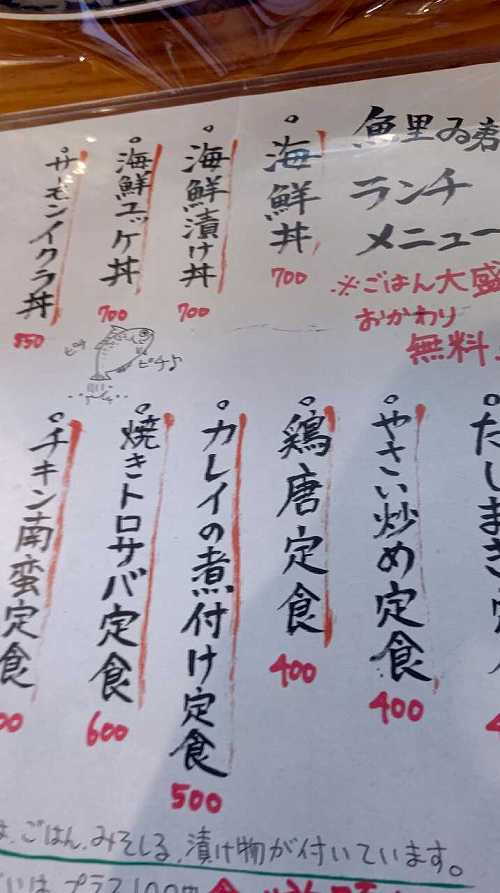 魚里ゐ
ランチ
メニュー
※ごはん大盛
おかわり
無料
海鮮丼
700
海鮮漬け丼
700
海鮮ユッケ丼
700
サーモンイクラ丼
850
ピチ
ピチ♪
だしまき
やさい炒め定食
400
鶏唐定食
400
カレイの煮付け定食
500
焼きトロサバ定食
600
チキン南蛮定食
00
は、ごはん、みそしる、漬け物が付いています。
プラス100円